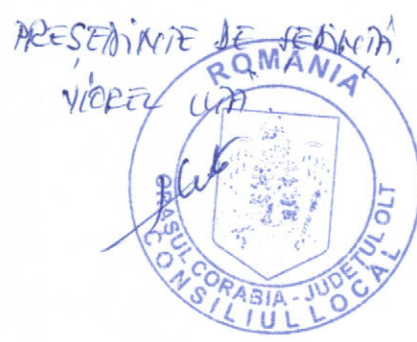 PREȘEDINTE DE ȘEDINȚĂ,
VIOREL
ROMÂNIA
ORAȘUL CORABIA - JUDEȚUL OLT
CONSILIUL LOCAL